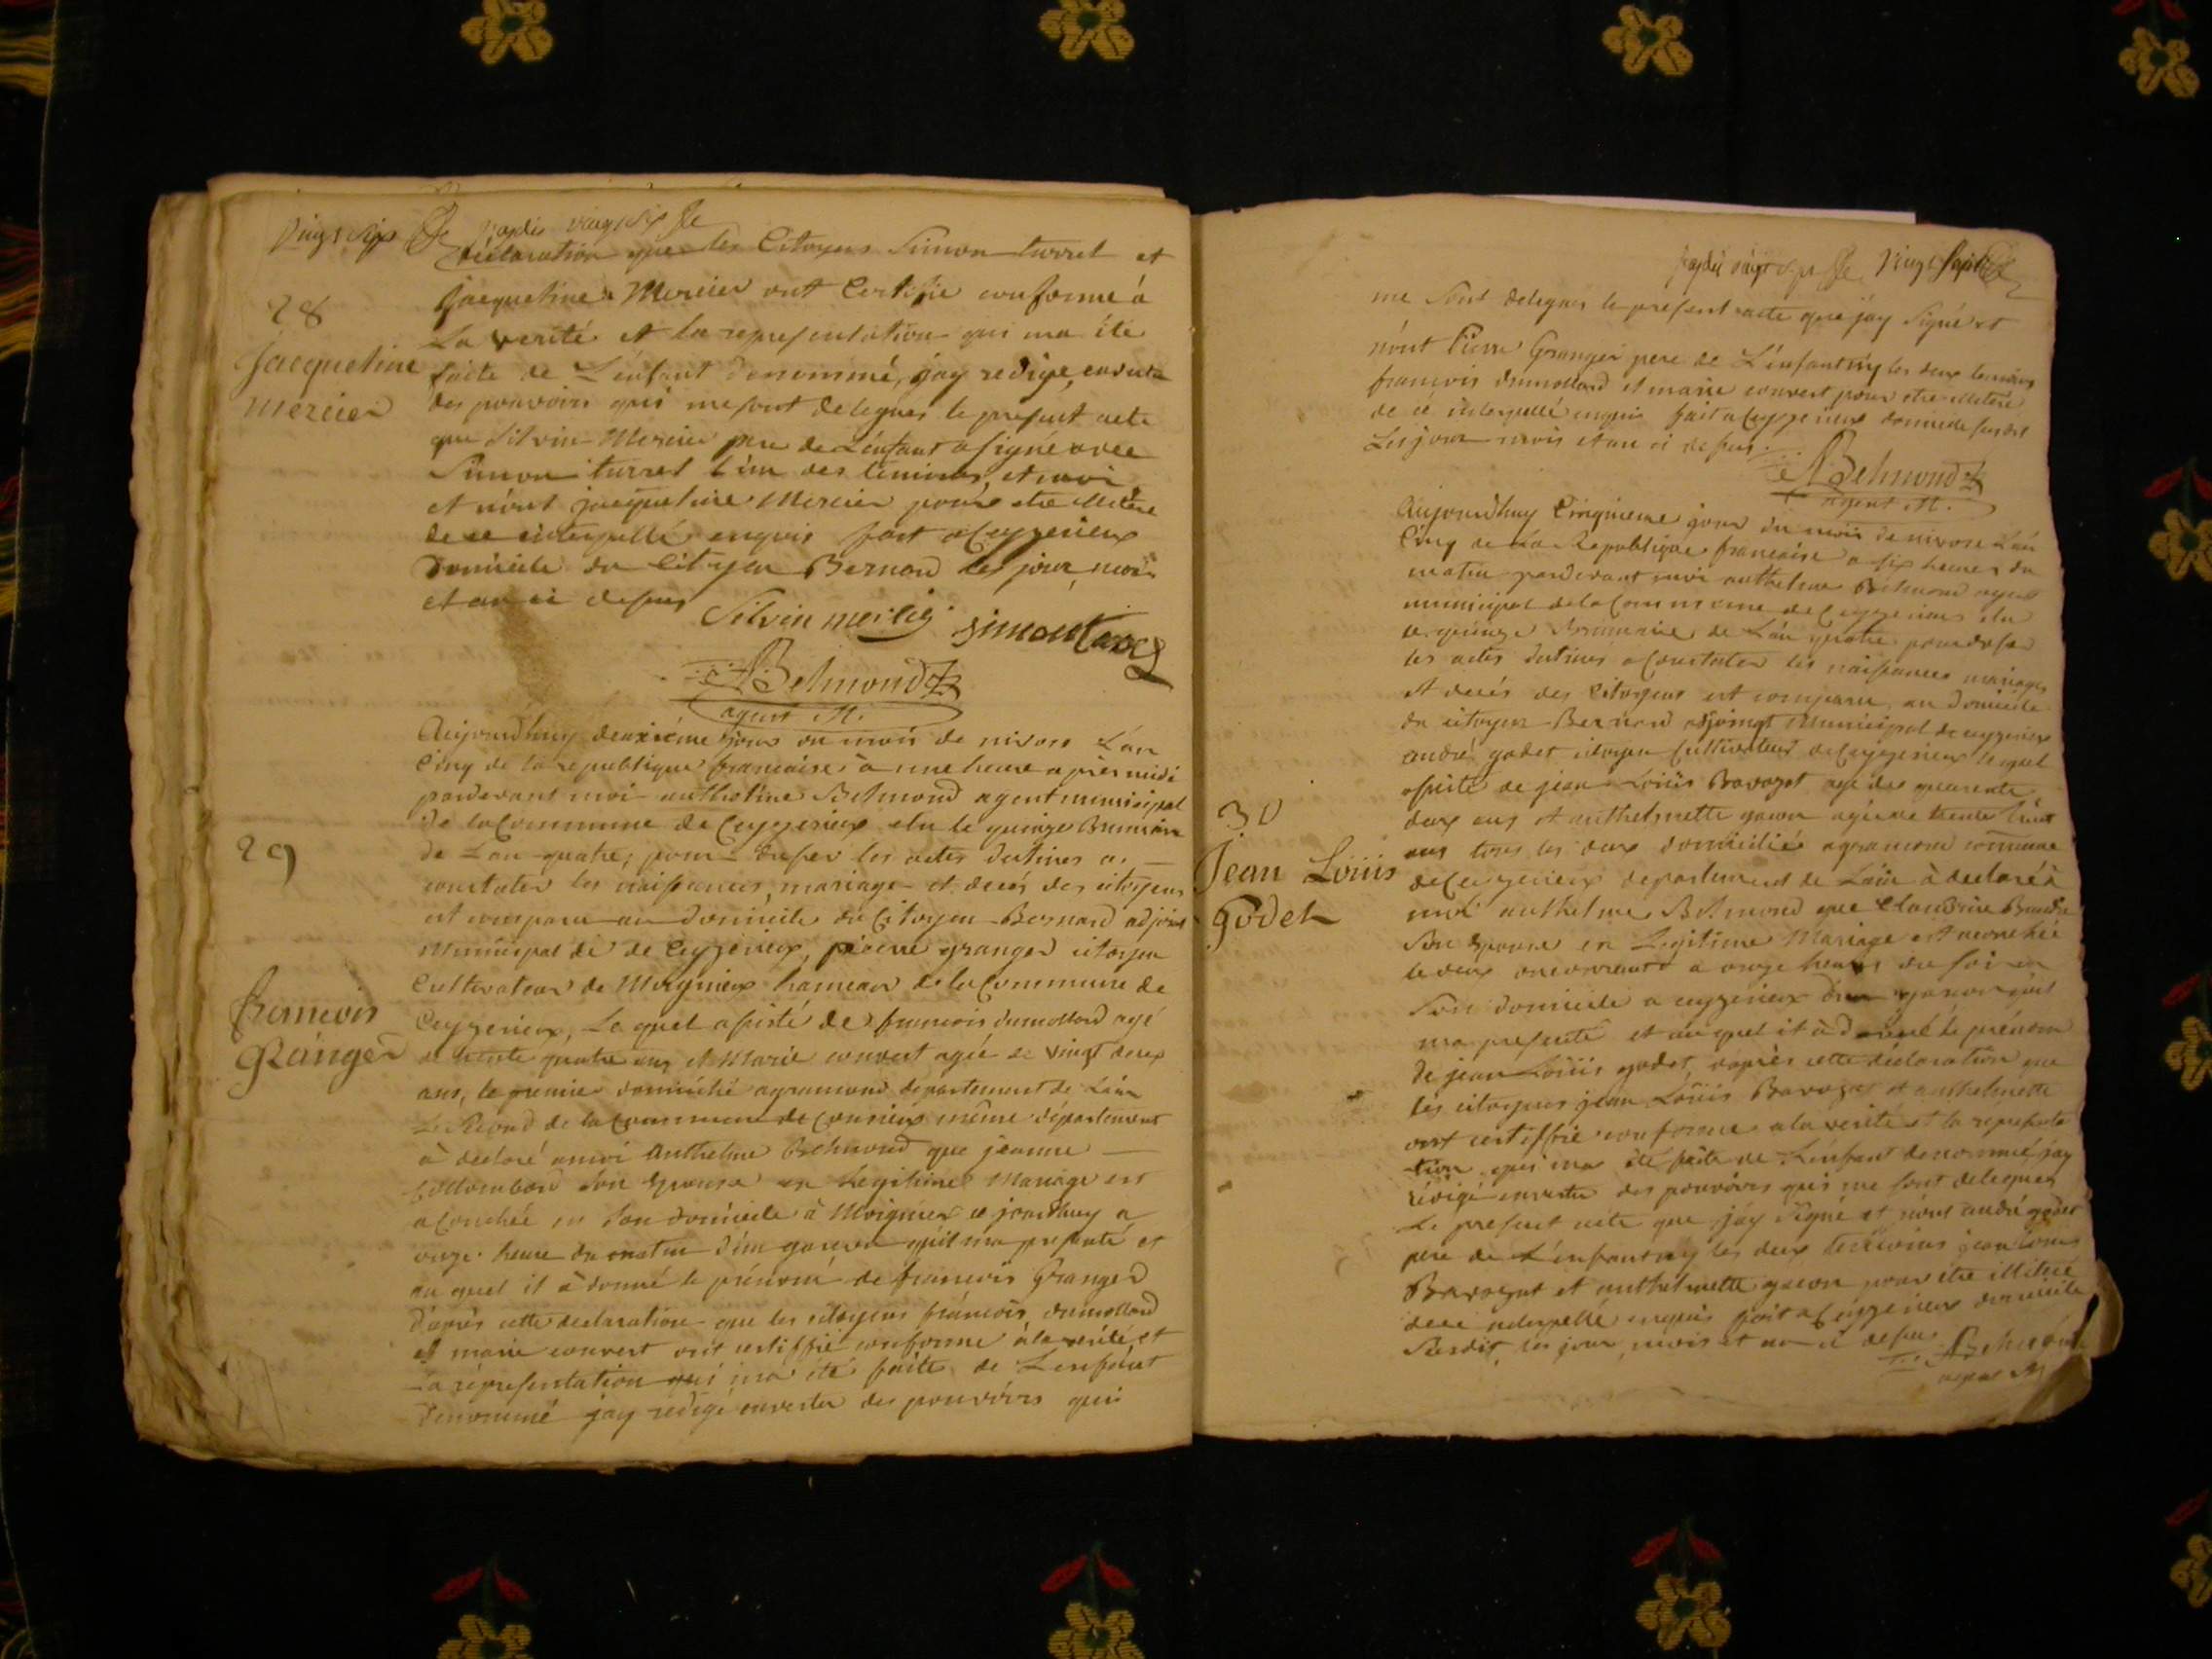 vingt six
déclaration que les Citoyens Simon turrel et
28
jacqueline Mercier ont Certifie conforme à
La verité et la representation qui ma été
Jacqueline
faite de L'enfant denommé, jay redigé, envertu
mercier
des pouvoirs qui me sont delegues le present acte
que Silvin Mercier pere de L'enfant a signé avec
Simon turrel l'un des temins, et moi
et nont jacqueline Mercier pour etre illitéré
de ce interpellé enquis fait a Ceyzerieux
Domicile du Citoyen Bernard les jour, mois
et an ci dessus
Silvin
ABelmond
agent M.
Aujourdhuy deuxiéme jour du mois de nivose L'an
Cinq de la republique francaise à une heure après midi
pardevant moi anthelme Belmond agent municipal
de la Commune de Ceyzerieux elu le quinze Brumaire
29
de L'an quatre, pour dresser les actes destines a
constater les naissances, mariage et decés des citoyens
est comparu au domicile du Citoyen Bernard adjoint
Municipal de de Ceyzerieux, pierre granger citoyen
Cultivateur de Morgnieux hameau de la Commune de
francois
Ceyzerieux, Le quel assisté de francois dumollard agé
Granger
de trente quatre ans et Marie convert agée de vingt deux
ans, le premier domicilié agramond departement de Lain
Le Second de la Commune de même departement
à declaré amoi Anthelme Belmond que jeanne
son Epouse en Legitime Mariage est
acouchée en son domicile à Morgnieux ce jourdhuy a
onze heure du matin d'un garcon quil ma presenté et
au quel il à donné le prénom de francois Granger
d'après cette declaration que les citoyens francois dumollard
et marie convert ont certiffié conforme à la verité et
la représentation qui ma été faite de L'enfant
denommé jay redigé envertu des pouvoirs qui
vingt Sept
me sont delegues le present acte que jay Signé et
nont Pierre Granger pere de L'enfant ny les deux temoins
francois dumollard et marie convert pour etre illitéré
de ce interpellé enquis fait a Ceyzerieux domicile susdit
Les jour mois et an ci dessus.
ABelmond
agent M.
Aujourdhuy Cinquieme jour du mois de nivose L'an
Cinq de La Republique francaise a six heures du
matin pardevant moi anthelme Belmond agent
municipal de la Commune de Ceyzerieux elu
le quinze Brumaire de L'an quatre pour dresser
les actes destinés a Constater les naissances mariages
et decés des Citoyens est comparu au domicile
du citoyen Bernard adjoingt Municipal de ceyzerieux
andré godet citoyen Cultivateur de Ceyzerieux lequel
assisté de jean Loüis Bavozat agé de quarente
30
deux ans et anthelmette gacon agée de trente huit
ans tous les deux domicilié agramond commune
Jean Loüis
de Ceyzerieux departement de Lain à declaré à
Godet
moi anthelme Belmond que Claudine
son Epouse en Legitime Mariage est acouchée
le deux du courrant à onze heures du soir en
Son domicile a ceyzerieux d'un garcon quil
ma presenté et au quel il à donné le prénom
de jean Loüis godet, daprès cette déclaration que
les citoyens jean Loüis Bavozat et anthelmette
ont certiffié conforme a la verité et la representa
tion qui ma été faite de L'enfant denommé, jay
rédigé envertu des pouvoirs qui me sont delegues
Le present acte que jay signé et nont andré godet
pere de L'enfant ny les deux temoins jean Loüis
Bavozat et anthelmette gacon pour être illitéré
de ce interpellé enquis fait a Ceyzerieux domicile
Susdit, les jour, mois et an ci dessus
ABelmond
agent M